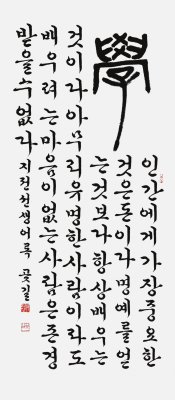 學
인간에게가장중요한
것은돈이나명예를얻
는것보다항상배우는
것이다아무리유명한사람이라도
배우려는마음이없는사람은존경
받을수없다 선생어록